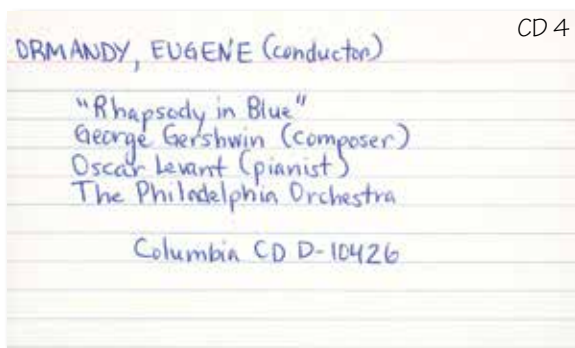 CD 4
ORMANDY, EUGENE (conductor)
"Rhapsody in Blue"
George Gershwin (composer)
Oscar Levant (pianist)
The Philadelphia Orchestra
Columbia CD D-10426